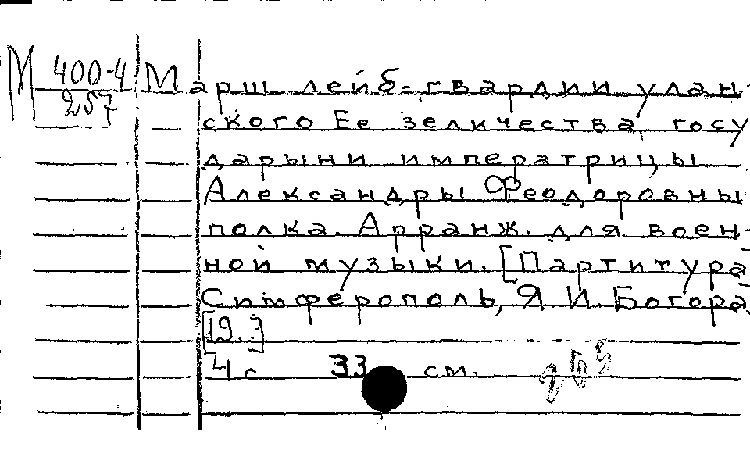 М 400-4
257
Марш лейб-гвардии улан-
ского Ее величества госу
дарыни императрицы
Александры Феодоровны
полка. Арранж. для воен-
ной музыки. [Партитура
Симферополь, Я. И. Богора,
[19..]
4 с 33 см.